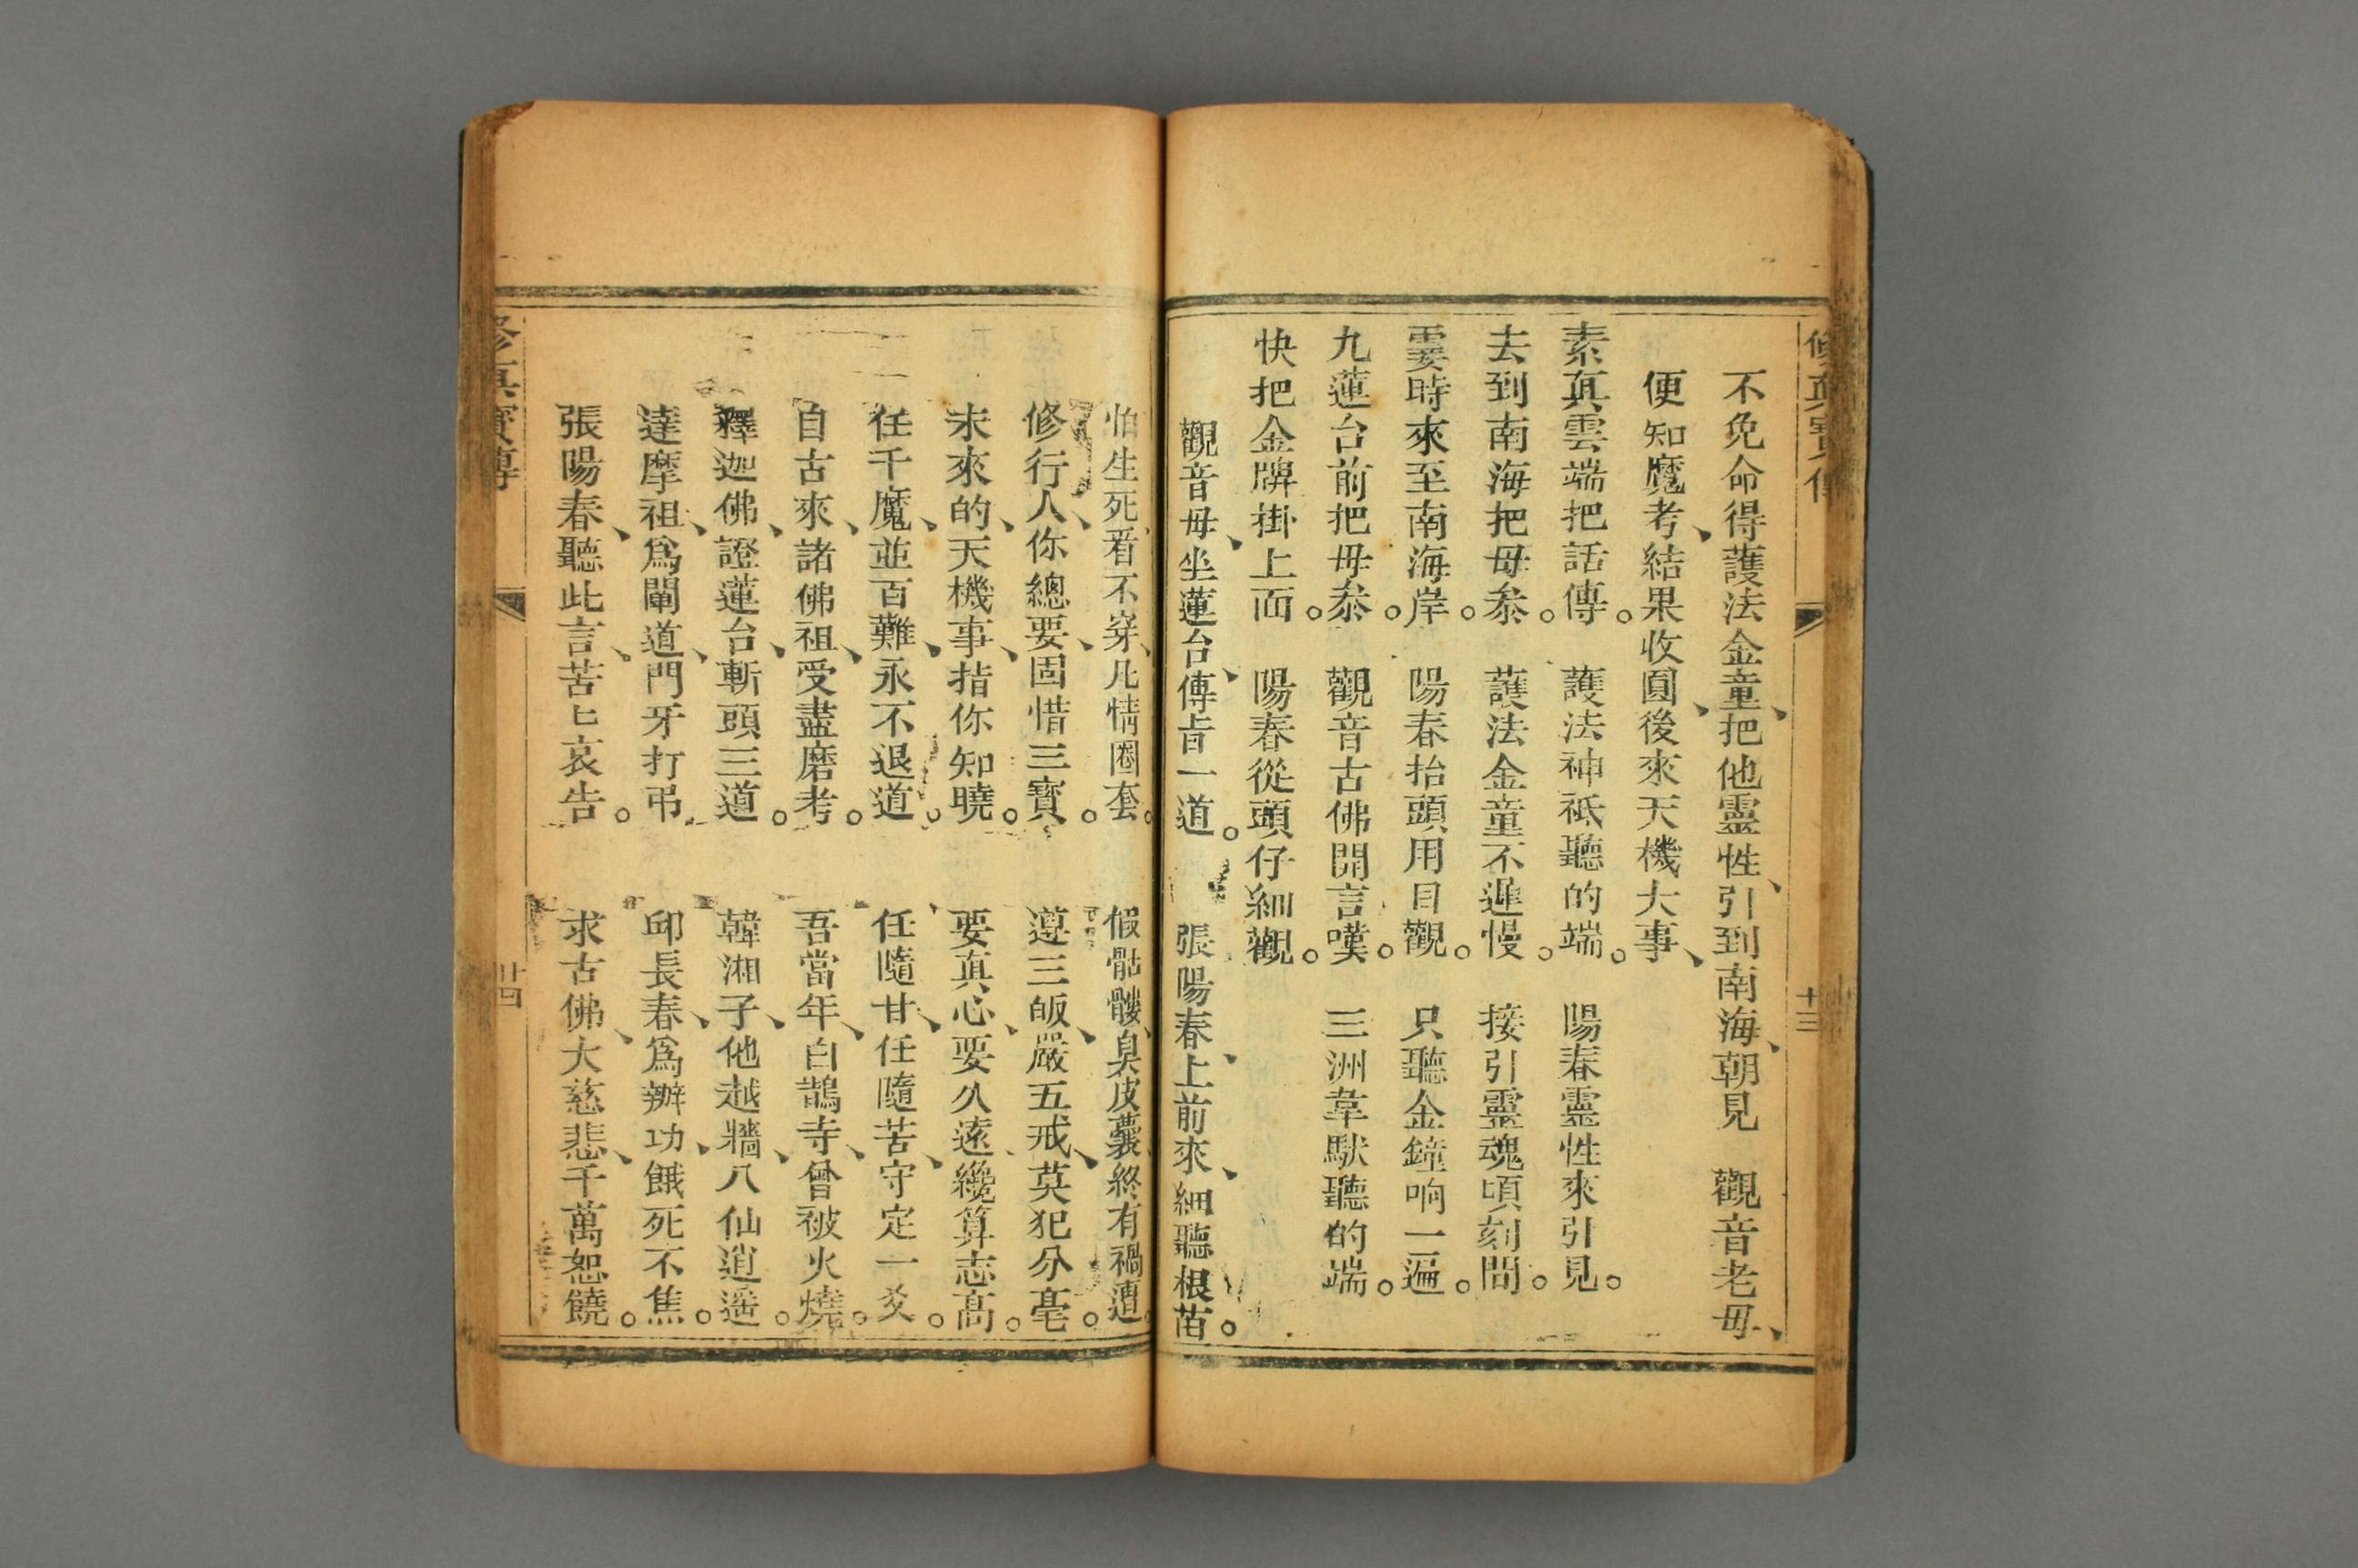 修真寶傳
十三
不免命得護法金童、把他靈性、引到南海、朝見　觀音老母、
便知魔考、結果收圓、後來天機大事、
素真雲端把話傳。　護法神祇聽的端。　陽春靈性來引見。
去到南海把母叅。　護法金童不遲慢。　接引靈魂頃刻間。
霎時來至南海岸。　陽春抬頭用目觀。　只聽金鐘响一遍。
九蓮台前把母叅。　觀音古佛開言嘆。　三洲韋馱聽的端。
快把金牌掛上面。　陽春從頭仔細觀。
觀音母、坐蓮台、傳旨一道。　張陽春、上前來、細聽根苗。
怕生死、看不穿、凡情圈套。　假骷髏、臭皮囊、終有禍遭。
修行人、你總要、固惜三寶。　遵三皈、嚴五戒、莫犯分毫。
未來的、天機事、指你知曉。　要真心、要久遠、纔算志高。
任千魔、並百難、永不退道。　任隨甘、任隨苦、守定一爻。
自古來、諸佛祖、受盡磨考。　吾當年、白鵲寺、曾被火燒。
釋迦佛、證蓮台、斬頭三道。　韓湘子、他越牆、八仙逍遥。
達摩祖、爲闡道、門牙打弔。　邱長春、爲辦功、餓死不焦。
張陽春、聽此言、苦匕哀告。　求古佛、大慈悲、千萬恕饒。
修真寶傳
廿四